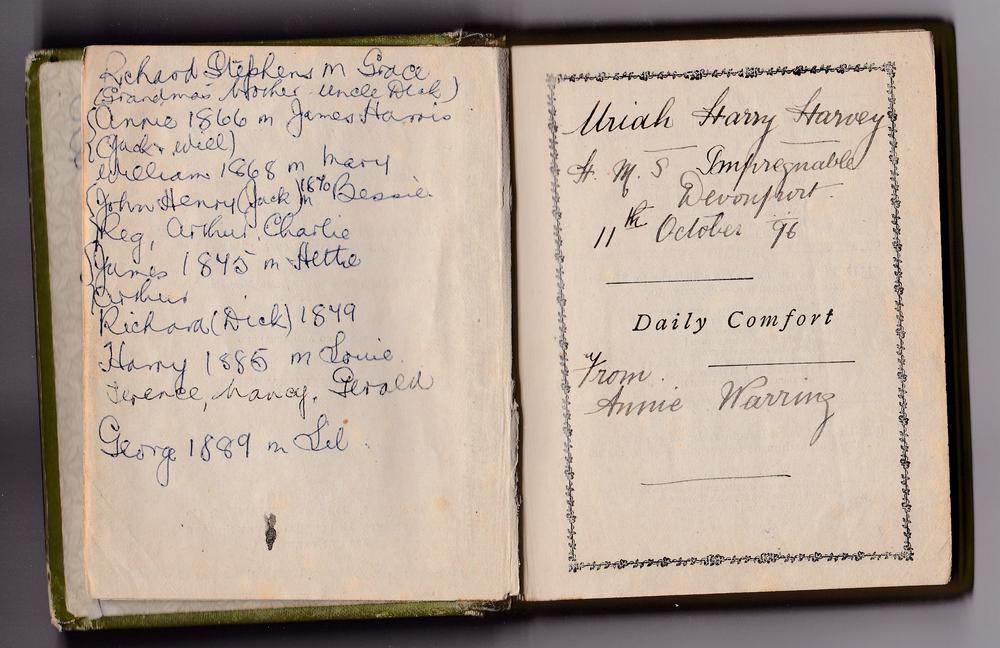 Richard Stephens m Grace
(Grandma's brother Uncle Dick)
Annie 1866 m James Harris
(Jack, Will)
William 1868 m Mary
John Henry (Jack) 1870 m Bessie
Reg, Arthur, Charlie
James 1845 m Hettie
Arthur
Richard (Dick) 1849
Harry 1885 m Louie
Terence, Nancy, Gerald
George 1889 m Lil
Uriah Harry Harvey
H. M. S Impregnable
Devonport.
11th October 96
Daily Comfort
From
Annie Warring